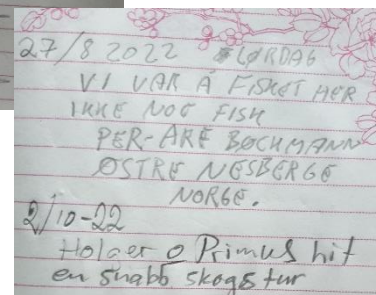 27/8 2022 LØRDAG
VI VAR Å FISKET HER
IKKE NOE FISH
PER-ARE BOCHMANN
ØSTRE NESBERGE
NORGE.
2/10-22
Holger o Primus hit
en snabb skogstur